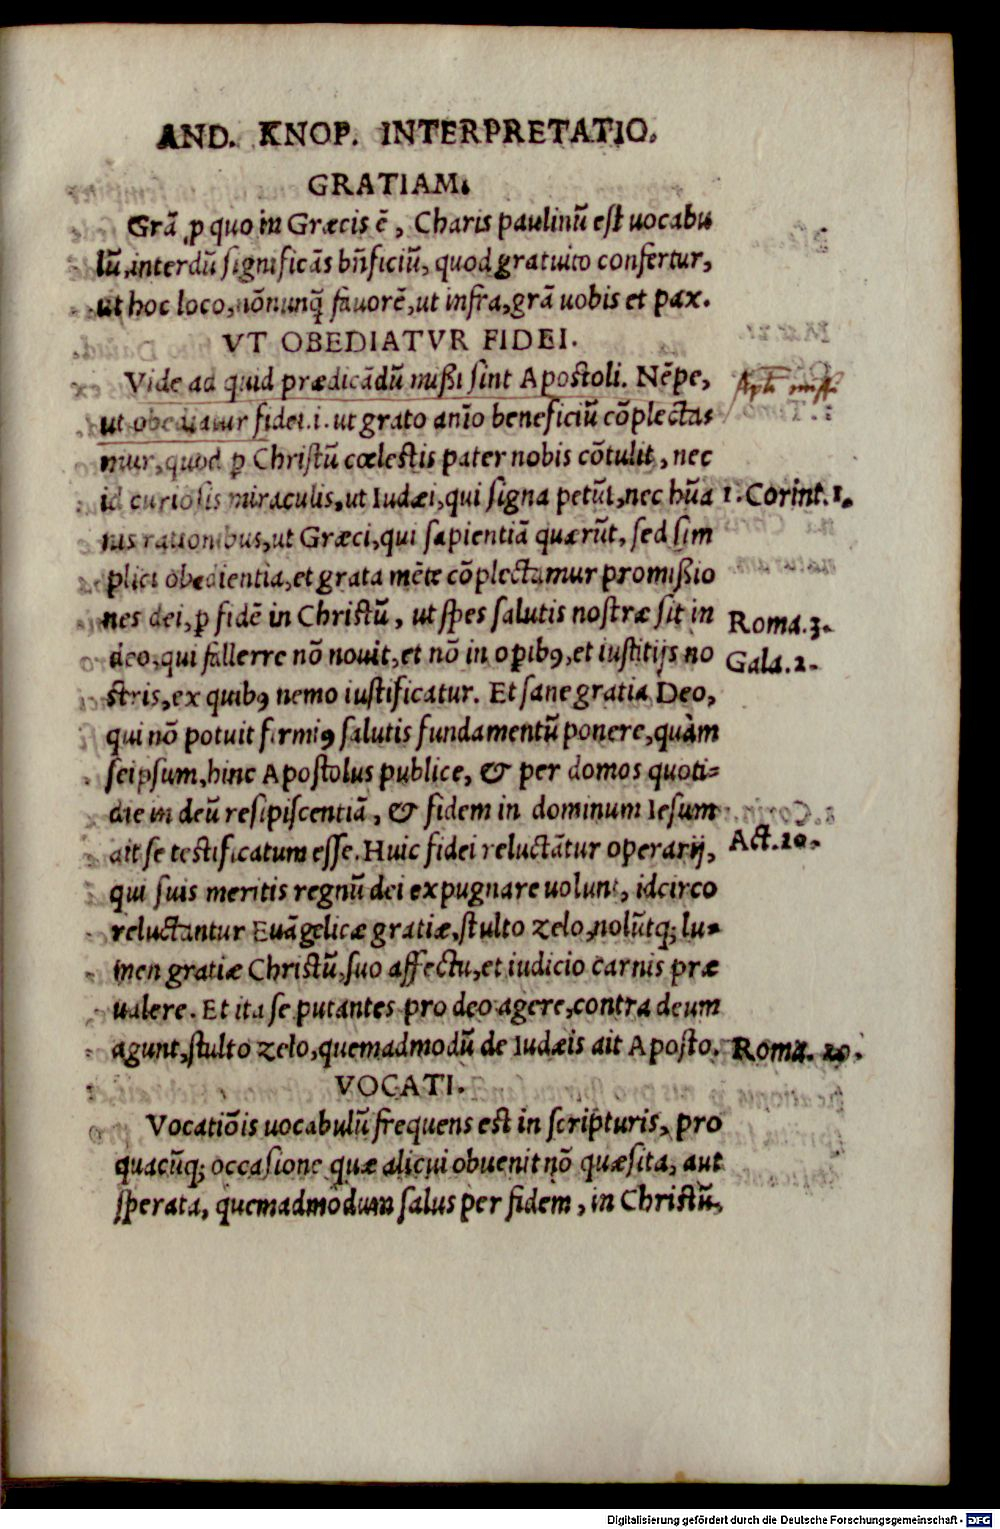 AND. KNOP. INTERPRETATIO.
GRATIAM.
Grã ꝓ quo in Græcis ẽ, Charis paulinũ est uocabu
lũ, interdũ significãs bñficiũ, quod gratuito confertur,
ut hoc loco, nõnunq̃ fauorẽ, ut infra, grã uobis et pax.
VT OBEDIATVR FIDEI.
Vide ad quid prædicãdũ mißi sint Apostoli. Nẽpe,
ut obediatur fidei .i. ut grato aĩo beneficiũ cõplectas
mur, quod ꝑ Christũ cœlestis pater nobis cõtulit, nec
id curiosis miraculis, ut Iudæi, qui signa petũt, nec hũa
1. Corint. 1.
nis rationibus, ut Græci, qui sapientiã quærũt, sed sim
plici obedientia, et grata mẽte cõplectamur promißio
nes dei, ꝑ fidẽ in Christũ, ut spes salutis nostræ sit in
Roma. 3.
deo, qui fallerre nõ nouit, et nõ in oꝑibꝰ, et iustitijs no
Gala. 2.
stris, ex quibꝰ nemo iustificatur. Et sane gratia Deo,
qui nõ potuit firmiꝰ salutis fundamentũ ponere, quàm
seipsum, hinc Apostolus publice, & per domos quoti=
die in deũ resipiscentiã, & fidem in dominum Iesum
ait se testificatum esse. Huic fidei reluctãtur operarij,
Act. 20.
qui suis meritis regnũ dei expugnare uolunt, idcirco
reluctantur Euãgelicæ gratiæ, stulto zelo, nolũtq; lu=
men gratiæ Christũ, suo affectu, et iudicio carnis præ
ualere. Et ita se putantes pro deo agere, contra deum
agunt, stulto zelo, quemadmodũ de Iudæis ait Aposto.
Roma. 10.
VOCATI.
Vocatiõis uocabulũ frequens est in scripturis, pro
quacũq; occasione quæ alicui obuenit nõ quæsita, aut
sperata, quemadmodum salus per fidem, in Christũ,
Digitalisierung gefördert durch die Deutsche Forschungsgemeinschaft - DFG